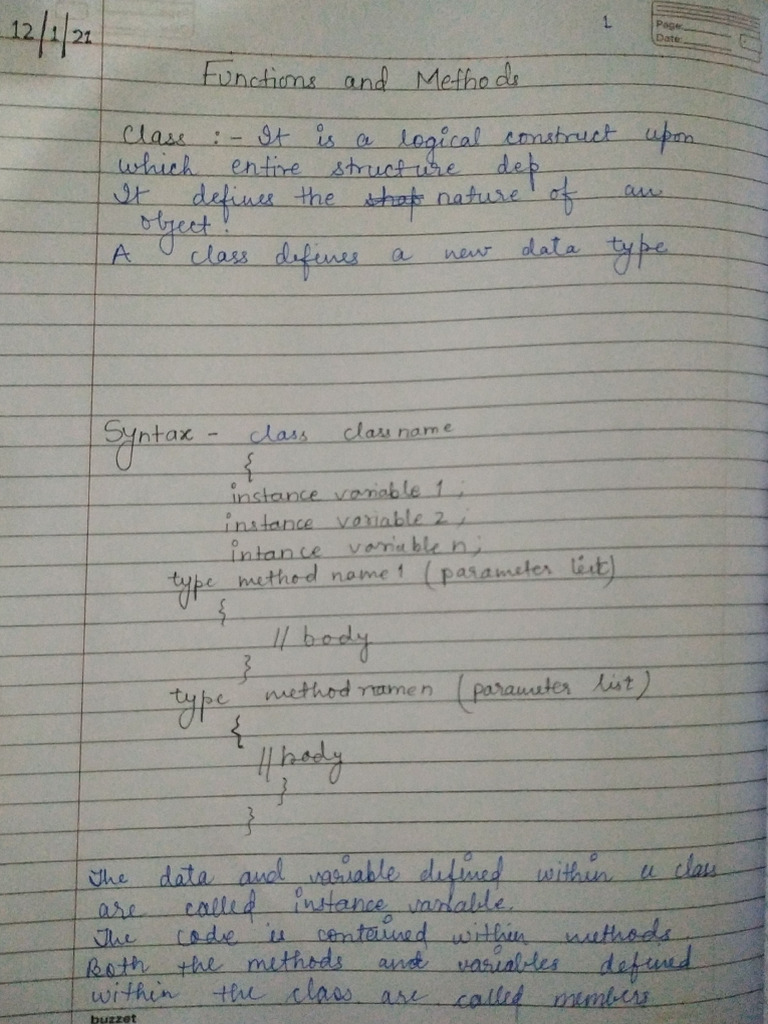 12/1/21
1
Page:
Date:
Functions and Methods
Class :- It is a logical construct upon
which entire structure dep
It defines the shap nature of an
object.
A class defines a new data type
Syntax - class classname
{
instance variable 1 ;
instance variable 2 ;
intance variable n;
type method name1 (parameter list)
{
// body
}
type methodnamen (parameter list)
{
//body
}
}
The data and variable defined within a class
are called instance variable.
The code is contained within methods
Both the methods and variables defined
within the class are called members
buzzet